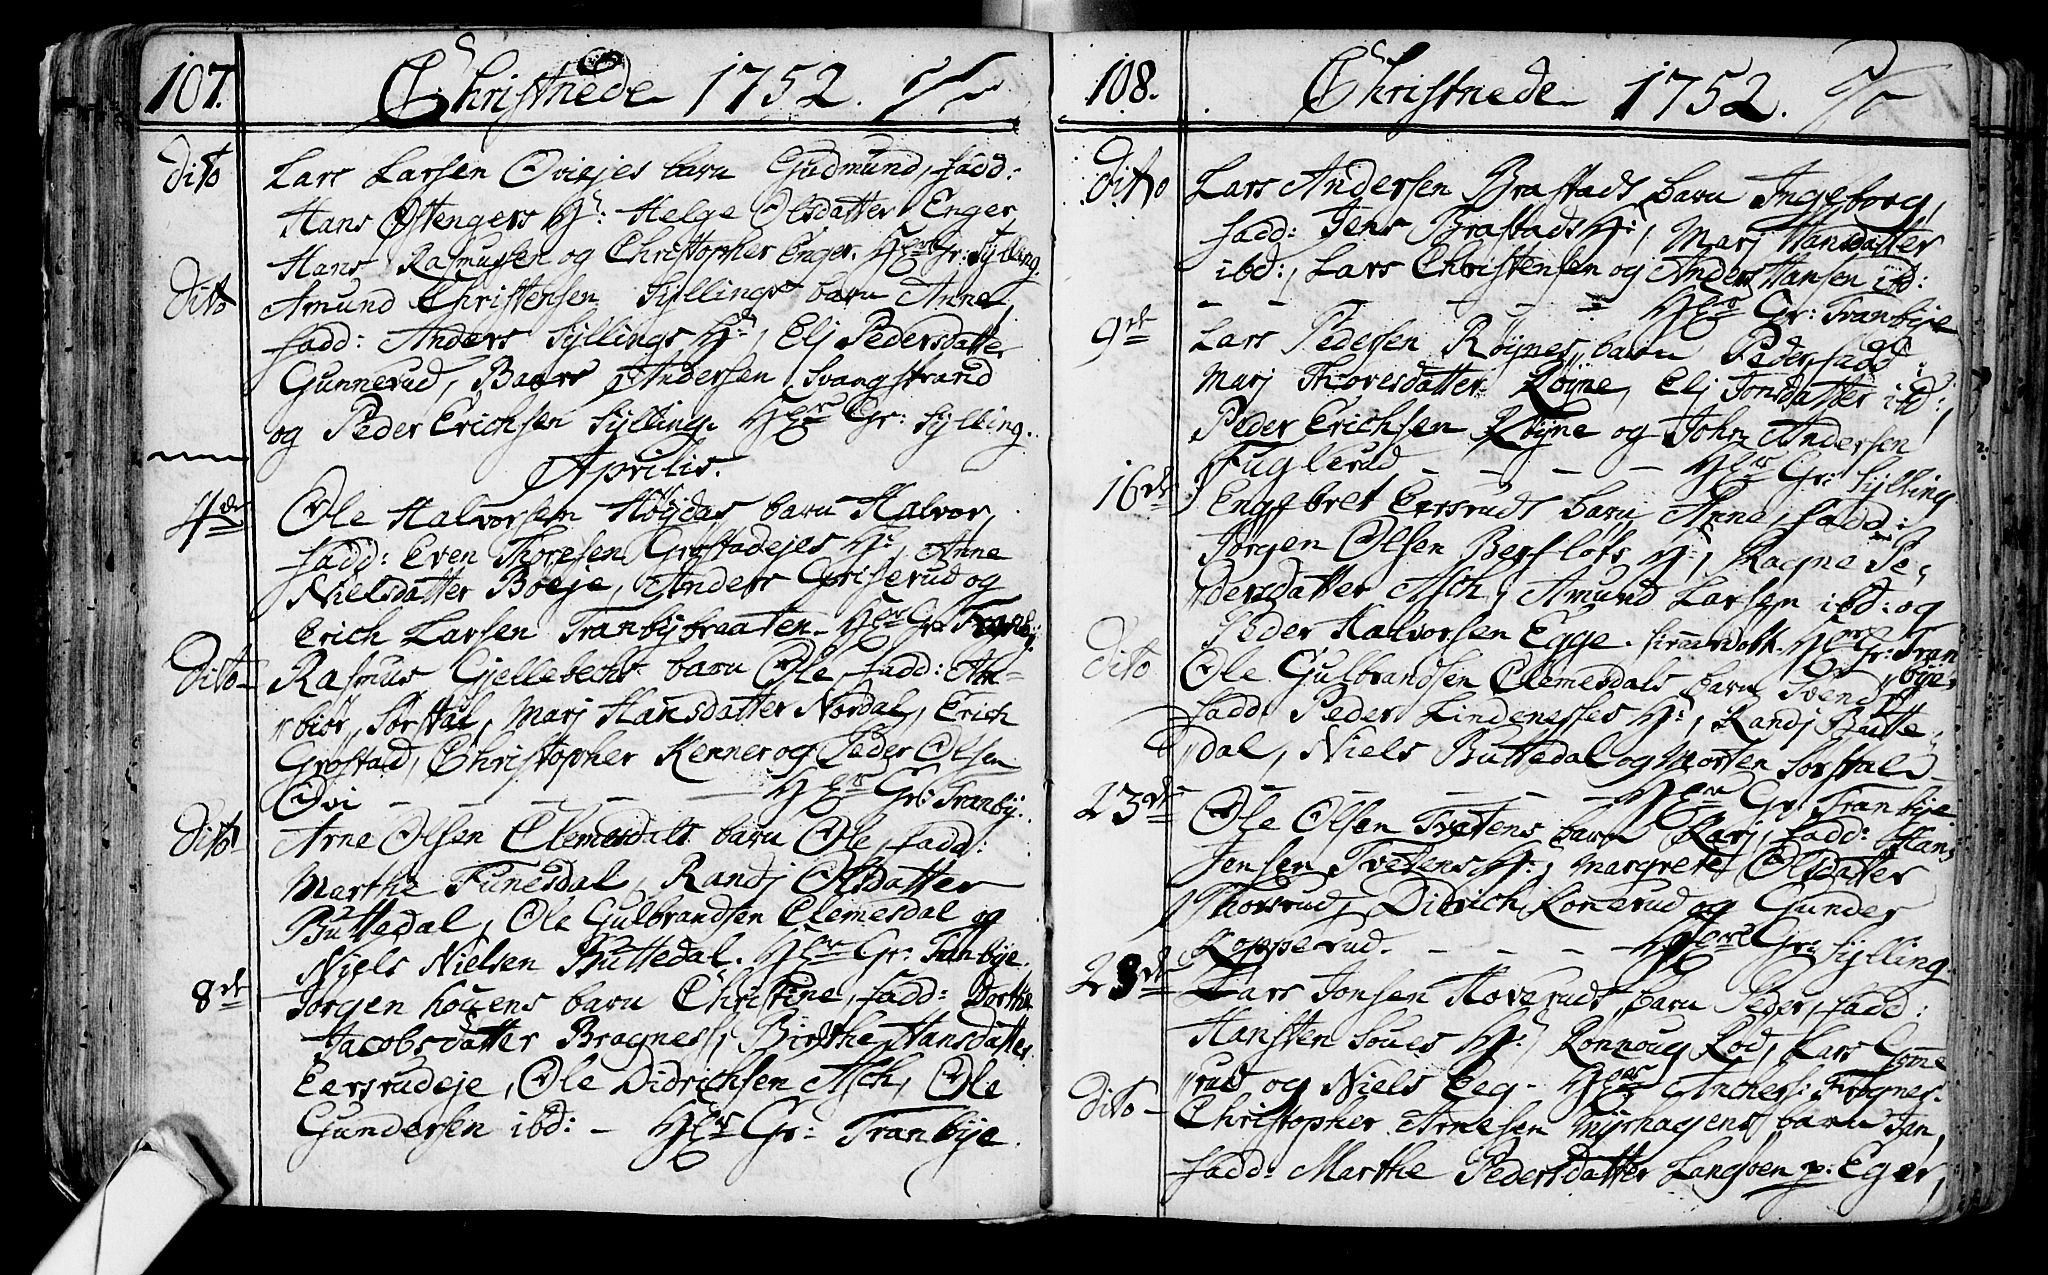 107. Christnede 1752.
dito Lars Larsen Oviejes barn Gudmund, fadd:
Hans Østengers H: Helge Olsdatter Enger,
Hans Rasmussen og Christopher Enger. Gr: Sylling.
dito Amund Christensen Syllings barn Anne,
fadd: Anders Syllings H:, Elj Pedersdatter
Gunnerud, Andersen Svangstrand
og Peder Erichsen Sylling. Gr: Sylling.
Aprilis.
4de Ole Halvorsen Høgdas barn Halvor,
fadd: Even Thoresen Grøstadejes H:, Anne
Nielsdatter Boeje, Anders Griserud og
Erich Larsen Tranbybraaten. Gr: Tranby.
Dito Rasmus Gjellebechs barn Ole, fadd: An-
biør Sørstal, Marj Hansdatter Nordal, Erich
Grøstad, Christopher Kenner og Peder Olsen
Ovi - - - - Gr: Tranby:
Dito Arne Olsen Clemesdals barn Ole, fadd:
Marthe Funesdal, Randj Olsdatter
Buttedal, Ole Gulbrandsen Clemesdal og
Niels Nielsen Buttedal. Gr: Tranbye.
8de Jørgen houens barn Christine, fadd: Dorthe
Jacobsdatter Bragnes, Birthe Hansdatter
Eersrudeje, Ole Didrichsen Asch, Ole
Gundersen ibd: - Gr: Tranbye.
108. Christnede 1752.
dito Lars Andersen Brastads barn Ingeborg,
fadd: Jens Brastads H:, Marj Hansdatter
ibd:, Lars Christensen og Anders Hansen ibd:
- - - - - Gr: Tranbye
9de Lars Pedersen Røynes barn Peder, fadd:
Marj Thoresdatter Røyne, Elj Jonsdatter ibd:,
Peder Erichsen Røyne og John Andersen
Fuglerud - - - - Gr: Sylling.
16de Engebret Eersruds barn Anne, fadd:
Jørgen Olsen Berfløts H:, Ragne Pe-
dersdatter Asch, Amund Larsen ibd: og
Peder Halvorsen Egge. Gr: Tran
bye.
dito Ole Gulbrandsen Clemesdals barn Svend,
fadd: Peder Lindenesses H:, Randj Butte-
dal, Niels Buttedal og Morten Sørstal
- - - - - Gr: Tranbye
23de Ole Olsen Tvetens barn Karj, fadd: Hans
Jensen Tvetens H:, Margrete Olsdatter
Thorsrud, Didrich Konerud og Gunder
Kopperud. - - - - Gr: Sylling.
Lars Jonsen Hoveruds barn Peder, fadd:
Hansten Soues H:, Ronnoug Rød, Lars Gome
rud og Niels Eeg - Ancher: Frognes.
dito - Christopher Arnesen Myrhagens barn Jan,
fadd: Marthe Pedersdatter Langøen p: Eger,